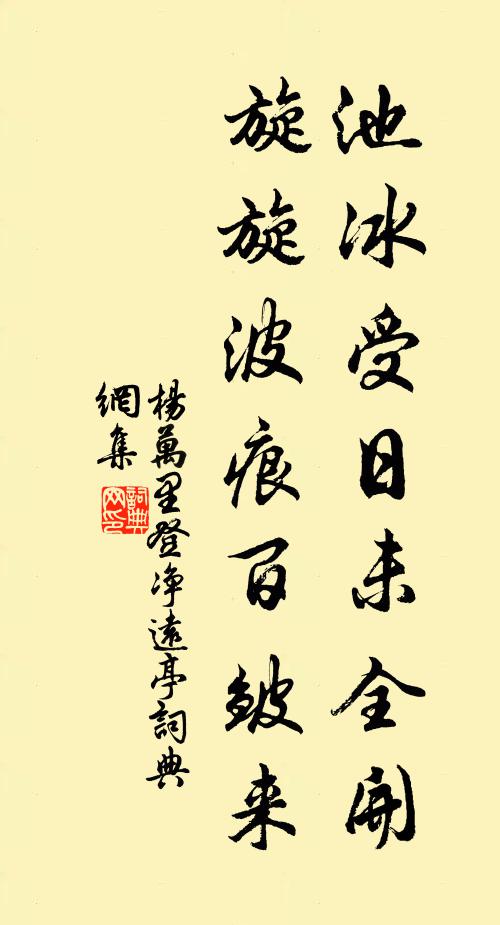 池冰受日未全開
旋旋波痕百皺来
楊萬里登净遠亭詞典
網集
詞典
网印